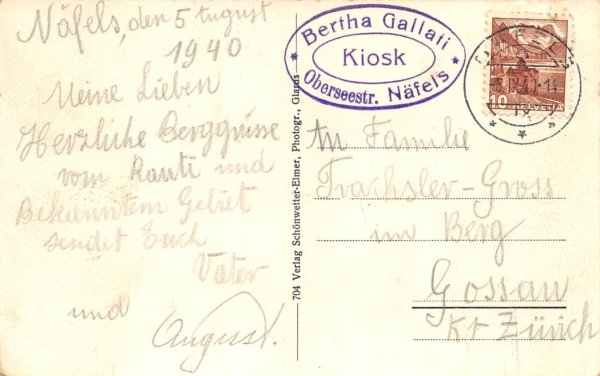 Näfels, den 5 August
1940
Meine Lieben
Herzliche Berggrüsse
vom Rauti und
Bekanntem Gebiet
sendet Euch
Vater
und
August.
704 Verlag Schönwetter-Elmer, Photogr., Glarus
Bertha Gallati
Kiosk
Oberseestr. Näfels
NÄFELS
10 HELVETIA
An Familie
Trachsler-Gross
im Berg
Gossau
Kt Zürich